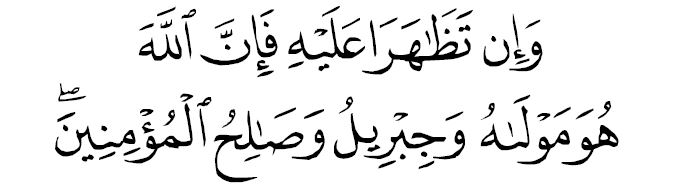 وَإِن تَظَٰهَرَا عَلَيْهِ فَإِنَّ ٱللَّهَ
هُوَ مَوْلَىٰهُ وَجِبْرِيلُ وَصَٰلِحُ ٱلْمُؤْمِنِينَۖ